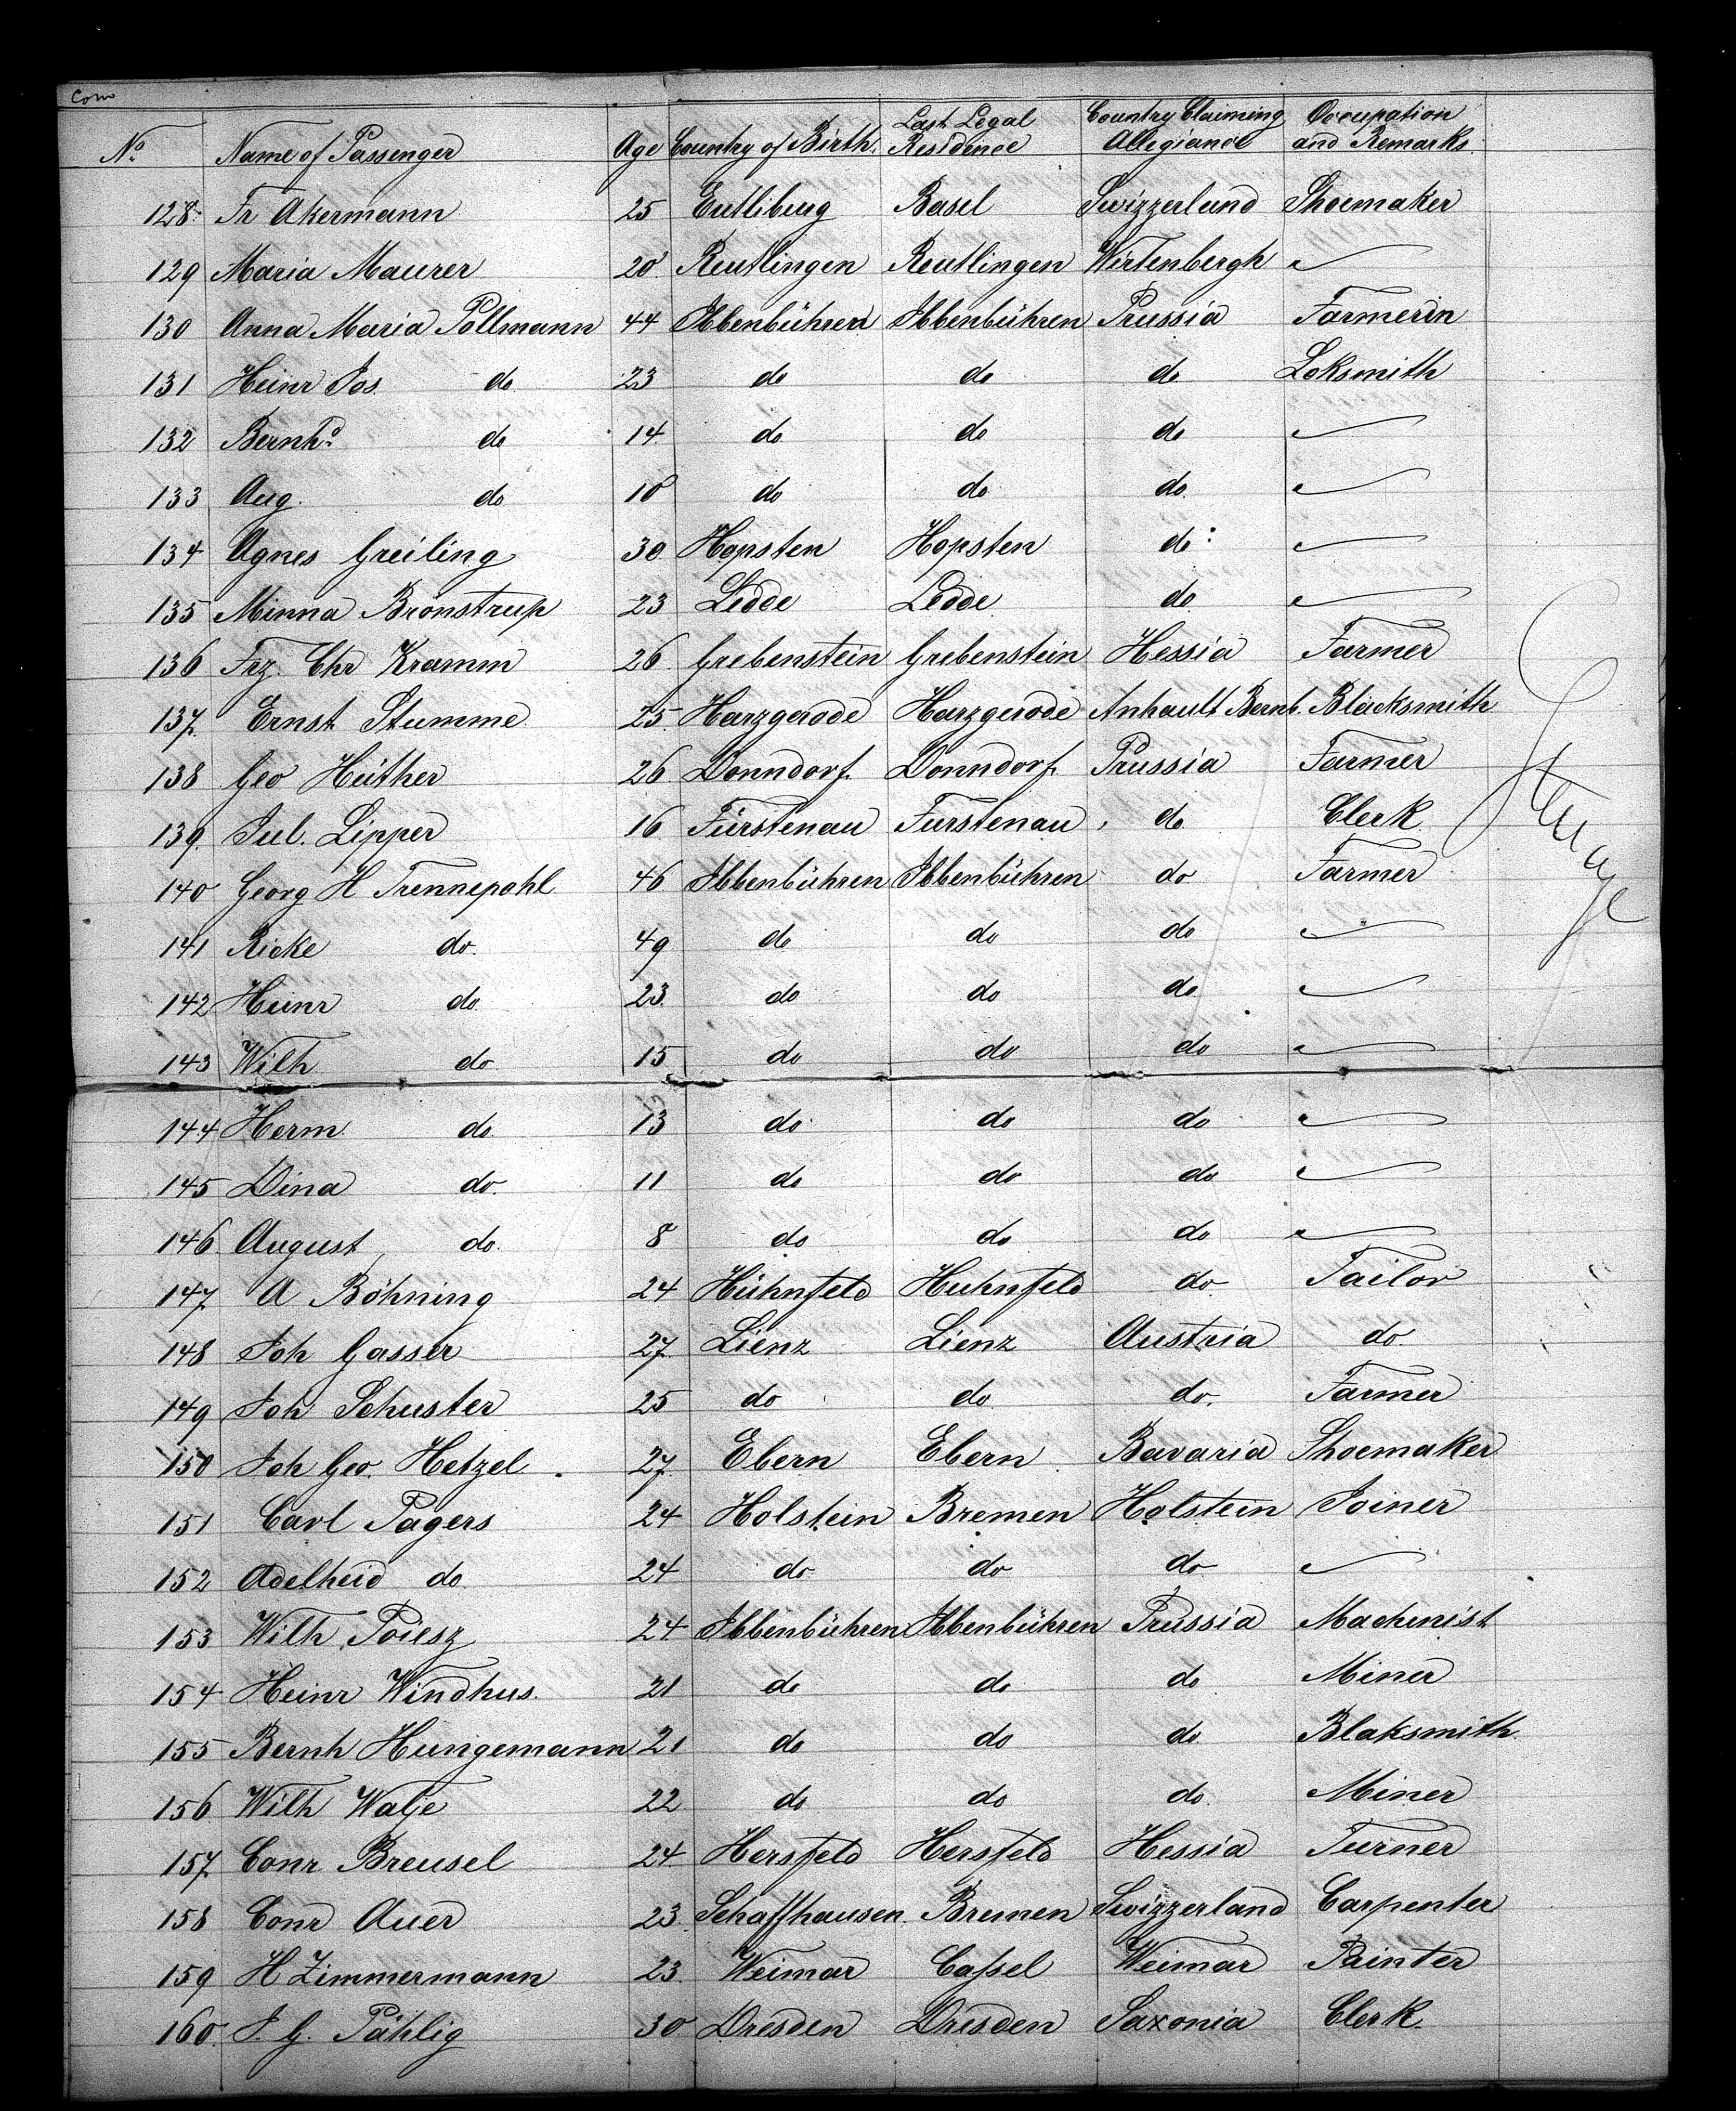 Com
No. Name of Passenger Age Country of Birth. Last Legal Residence Country Claiming Allegiance Occupation and Remarks.
128. Fr Akermann 25 Entliburg Basel Swizzerland Shoemaker
129 Maria Maurer 20 Reutlingen Reutlingen Wirtenbergh
130 Anna Maria Pollmann 44 Ibbenbühren Ibbenbühren Prussia Farmerin
131 Heinr Jos. do 23 do do do Loksmith
132 Bernhd do 14 do do do
133 Aug. do 10 do do do
134 Agnes Greiling 30. Hopsten Hopsten do
135 Minna Bronstrup 23 Ledde Ledde do
136 Frz. Chr Kramm 26. Grebenstein Grebenstein Hessia Farmer
137. Ernst Stumme 25. Harzgerode Harzgerode Anhault Bernb. Blacksmith
138 Geo Heither 26 Donndorf Donndorf Prussia Farmer
139. Jul. Lipper 16 Fürstenau Furstenau do Clerk
140 Georg H Trennepohl 46 Ibbenbühren Ibbenbühren do Farmer
141 Ricke do. 49 do do do
142 Heinr do. 23. do do do
143 Wilh do 15 do do do
144 Herm do 13 do do do
145 Dina do. 11 do do do
146 August do. 8 do do do
147. A Böhning 24 Hühnfeld Huhnfeld do. Tailor
148 Joh Gasser 27 Lienz Lienz Austria do.
149 Joh Schuster 25 do do do. Farmer
150 Joh Geo. Hetzel 27. Ebern Ebern Bavaria Shoemaker
151 Carl Pagers 24 Holstein Bremen Holstein Joiner
152 Adelheid do. 24 do do do
153 Wilh Poiesz 24 Ibbenbühren Ibbenbühren Prussia Machinist
154 Heinr Windhus. 21 do do do Miner
155 Bernh Hungemann 21 do do do Blaksmith.
156 Wilh Walje 22 do do do. Miner
157 Conr Breusel 24. Hersfeld Hersfeld Hessia Turner
158 Conr Auer 23. Schaffhausen. Bremen Swizzerland Carpenter
159 H Zimmermann 23. Weimar Caſsel Weimar Painter
160. J. G. Pählig 30 Dresden Dresden Saxonia Clerk.